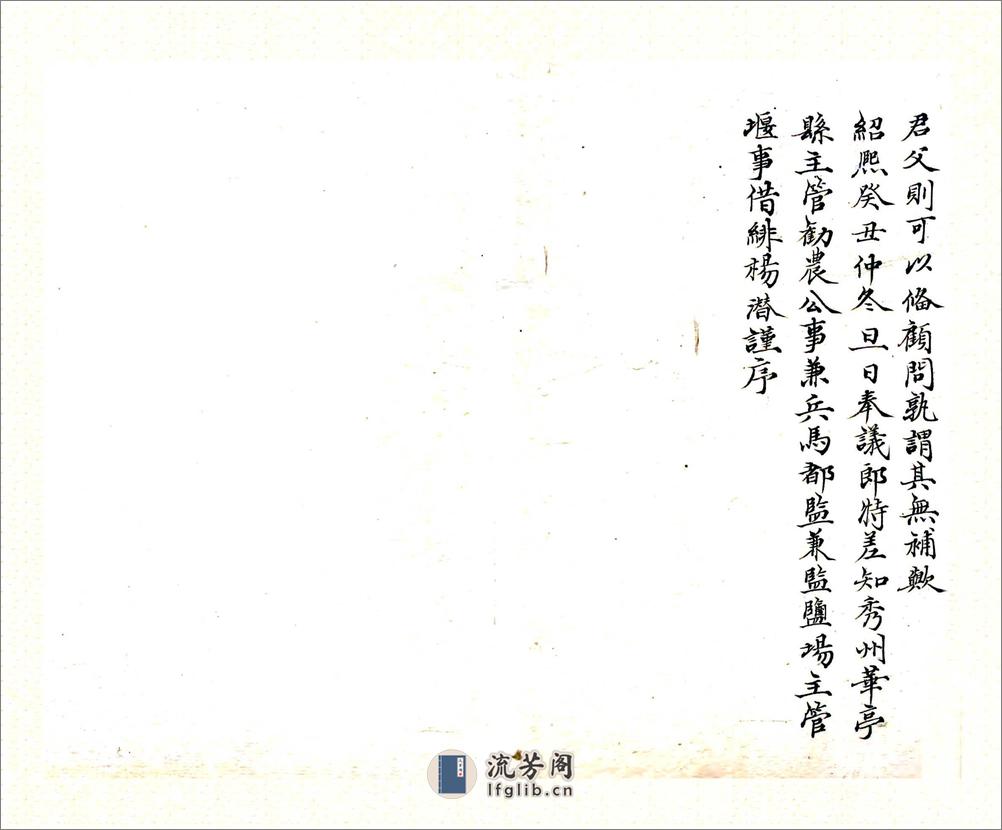 君父則可以俻顧問孰謂其無補歟
紹熈癸丑仲冬旦日奉議郎特差知秀州華亭
縣主管勸農公事兼兵馬都監兼監鹽場主管
堰事借緋楊潛謹序
流芳阁
lfglib.cn